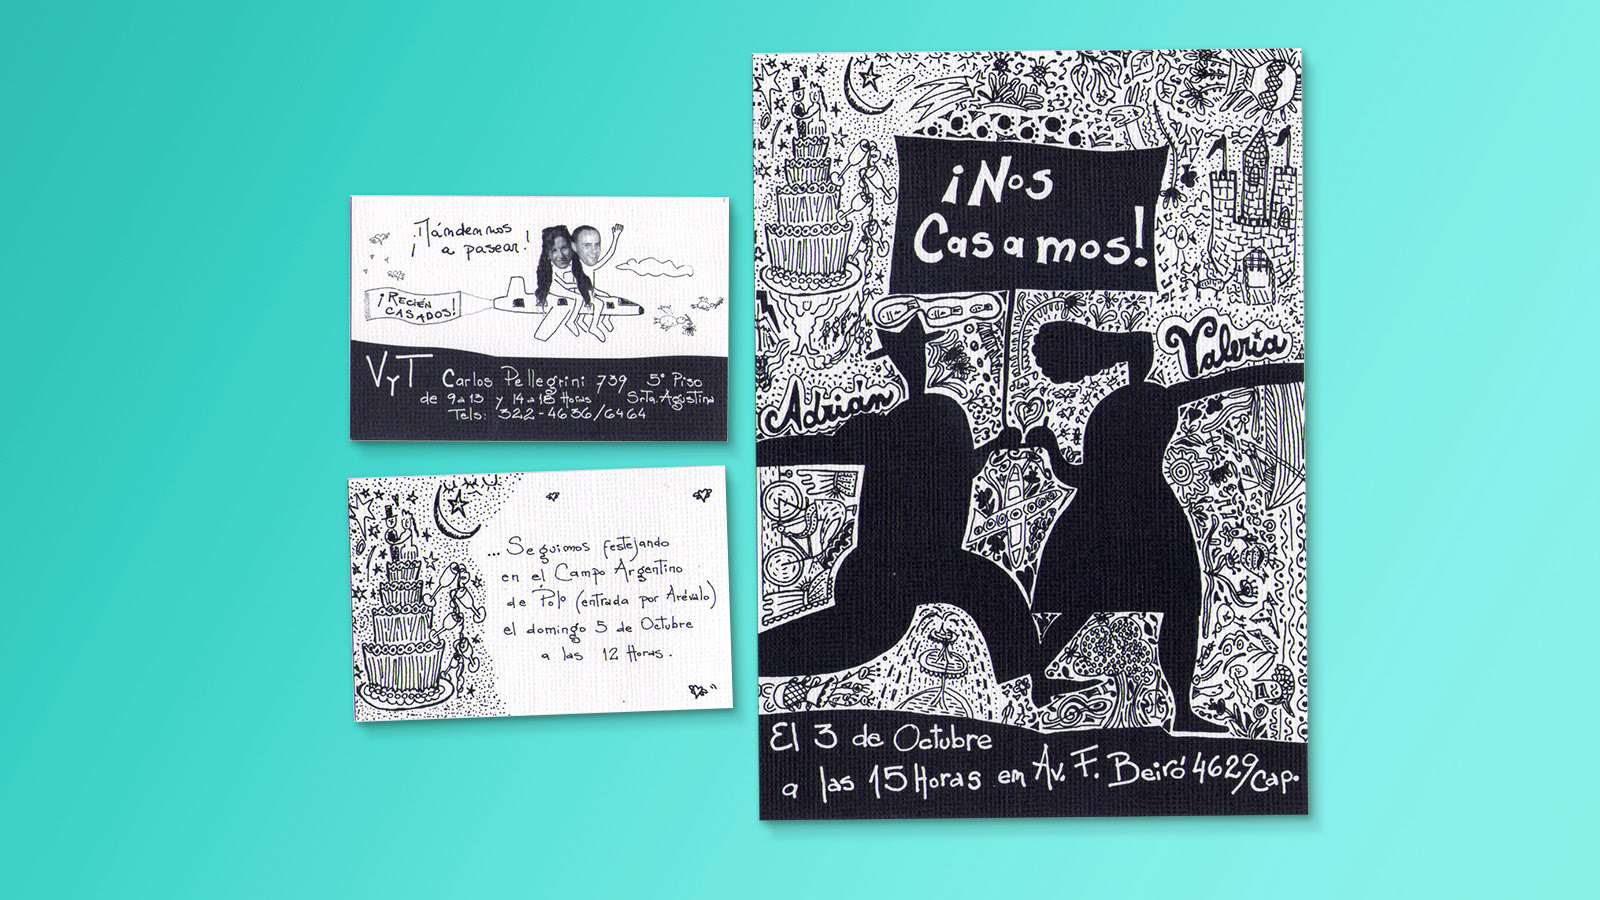 ¡Mándennos
a pasear!
¡RECIÉN
CASADOS!
VyT Carlos Pellegrini 739 5º Piso
de 9 a 13 y 14 a 18 Horas / Srta. Agustina
Tels: 322-4636/6464
...Seguimos festejando
en el Campo Argentino
de Polo (entrada por Arévalo)
el domingo 5 de Octubre
a las 12 Horas.
¡Nos
Casamos!
Valeria
Adrián
El 3 de Octubre
a las 15 Horas en Av. F. Beiró 4629/Cap.